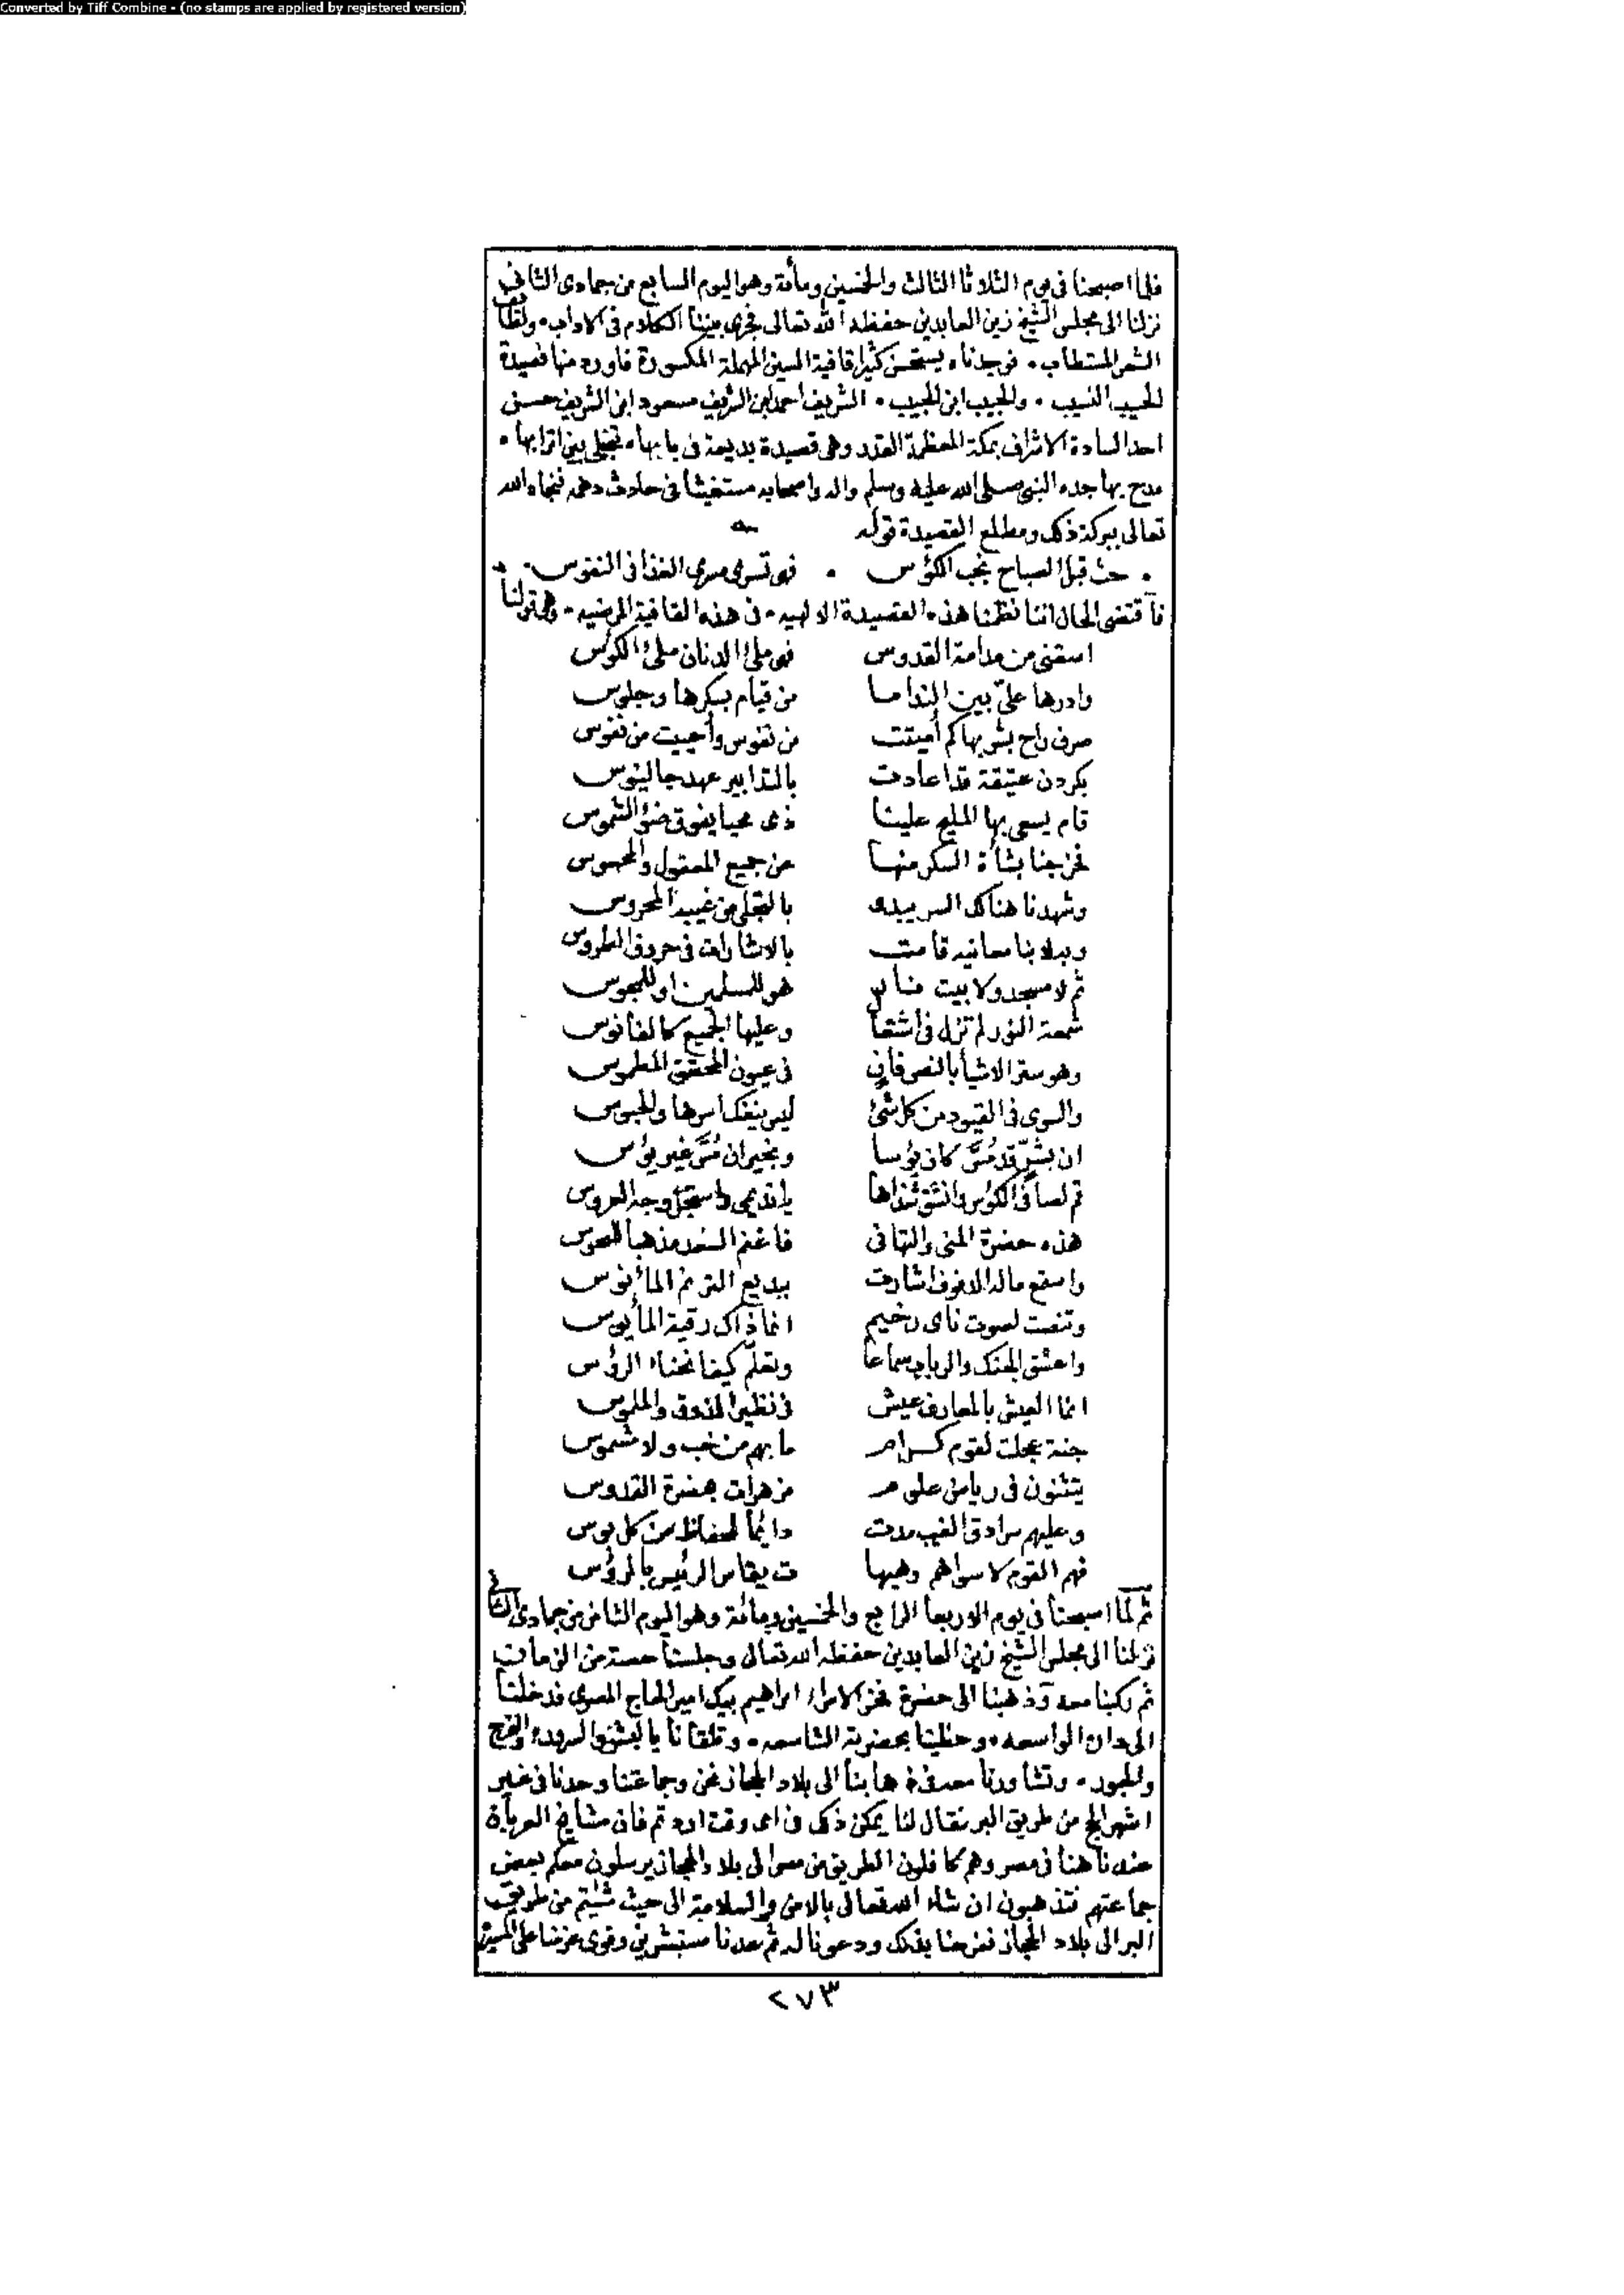 Converted by Tiff Combine - (no stamps are applied by registered version)
فلما اصبحنا فى يوم الثلاثا الثالث والخمسين ومأئة وهو اليوم السابع من جمادى الثانى
نزلنا الى مجلس الشيخ زين العابدين حفظه الله تعالى فجرى بيننا الكلام فى الاداب ولطائف
الشعر المستطاب . فوجدناه يستحسن كثيرا قافية السين المهملة المكسورة فاورد منها قصيدة
للحسيب النسيب . والحبيب ابن الحبيب . الشريف احمد ابن الشريف مسعود ابن الشريف حسن
احد السادة الاشراف بمكة المعظمة القدر وهى قصيدة بديعة فى بابها . تنجلى بين اترابها .
مدح بها جده النبى صلى الله عليه وسلم واله واصحابه مستغيثا فى حادث دهمه فنجاه الله
تعالى ببركة ذلك ومطلع القصيدة قوله
. حث قبل الصباح نجب الكؤس . فهى تسرى مسرى الغذا فى النفوس .
فاقتضى الحال اننا نظمنا هذه القصيدة الالهيه . فى هذه القافية المرضيه . وهى قولنا
اسقنى من مدامة القدوس فهى ملئ الدنان ملئ الكؤس
وادرها على بين الندامـا من قيام بسكرها وجلوس
صرف راح بشربها كم أميتت من نفوس وأحييت من نفوس
بكر دن عتيقة قد اعادت بالتدابير عهد جالينوس
قام يسعى بها المليح علينا ذى محيا يفوق ضؤ الشموس
فخرجنا بنشأة السكر منها عن جميع المعقول والمحسوس
وشهدنا هناك السر يبدى بالتجلى من غيبه المحروس
وبدا بنا معانيه قامت بالاشارات فى حروف الطروس
ثم لا مسجد ولا بيت نار هو للمسلمين او للمجوس
شمعة النور لم تزل فى اشتعال وعليها الجميع كالفانوس
وهو ستر الاشيا بالنص فانى فى عيون المحقق المطموس
والسوى فى القيود من كل شئ ليس ينفك اسرها والحبوس
ان بشر قد مس كان يؤسا وبخير ان مس غير يؤس
قم لصافى الكؤس وانشق شذاها يا نديمى واستجل وجه العروس
هذه حضرة المنى والتهانى فاغنم السعد مذهبا للنحوس
واستمع ما له الدفوف اشارت ببديع الترنم المأنوس
وتنصت لصوت ناى رخيم انما ذاك رقية المأيوس
واعشق الجنك والرباب سماعا وتعلم كيف انحناء الرؤس
انما العيش بالمعارف عيش فى نظير المذوق والملموس
جنة عجلت لقوم كـرام ما بهم من خب ولا شموس
يتثنون فى رياض علوم مزهرات بحضرة القدوس
وعليهم سرادق الغيب مدت دائما لحفاظ من كل بوس
فهم القوم لا سواهم وهيها ت يقاس الرئيس بالمرؤس
ثم لما اصبحنا فى يوم الاربعا الرابع والخمسين ومائة وهو اليوم الثامن من جمادى الثانى
نزلنا الى مجلس الشيخ زين العابدين حفظه الله تعالى وجلسنا حصة من الزمان
ثم ركبنا معه وذهبنا الى حضرة فخر الامراء ابراهيم بيك امير الحاج المصرى فدخلنا
الى داره الواسعه . وحظينا بحضرته الشاسعه . وتلقانا بالبشر والسرور والفرح
والحبور . وتشاورنا معه فى ذهابنا الى بلاد الحجاز نحن وجماعتنا وحدنا فى غير
اشهر الحج من طريق البر فقال لنا يمكن ذلك فى اى وقت اردتم فان مشايخ العربان
عندنا هنا فى مصر وهم كافلون الطريق من مصر الى بلاد الحجاز يرسلون معكم بعض
جماعتهم فتذهبون ان شاء الله تعالى بالامن والسلامة الى حيث شئتم من طريق
البر الى بلاد الحجاز ففرحنا بذلك ودعونا له ثم عدنا مستبشرين وقوى عزمنا على المسير
٢٧٣